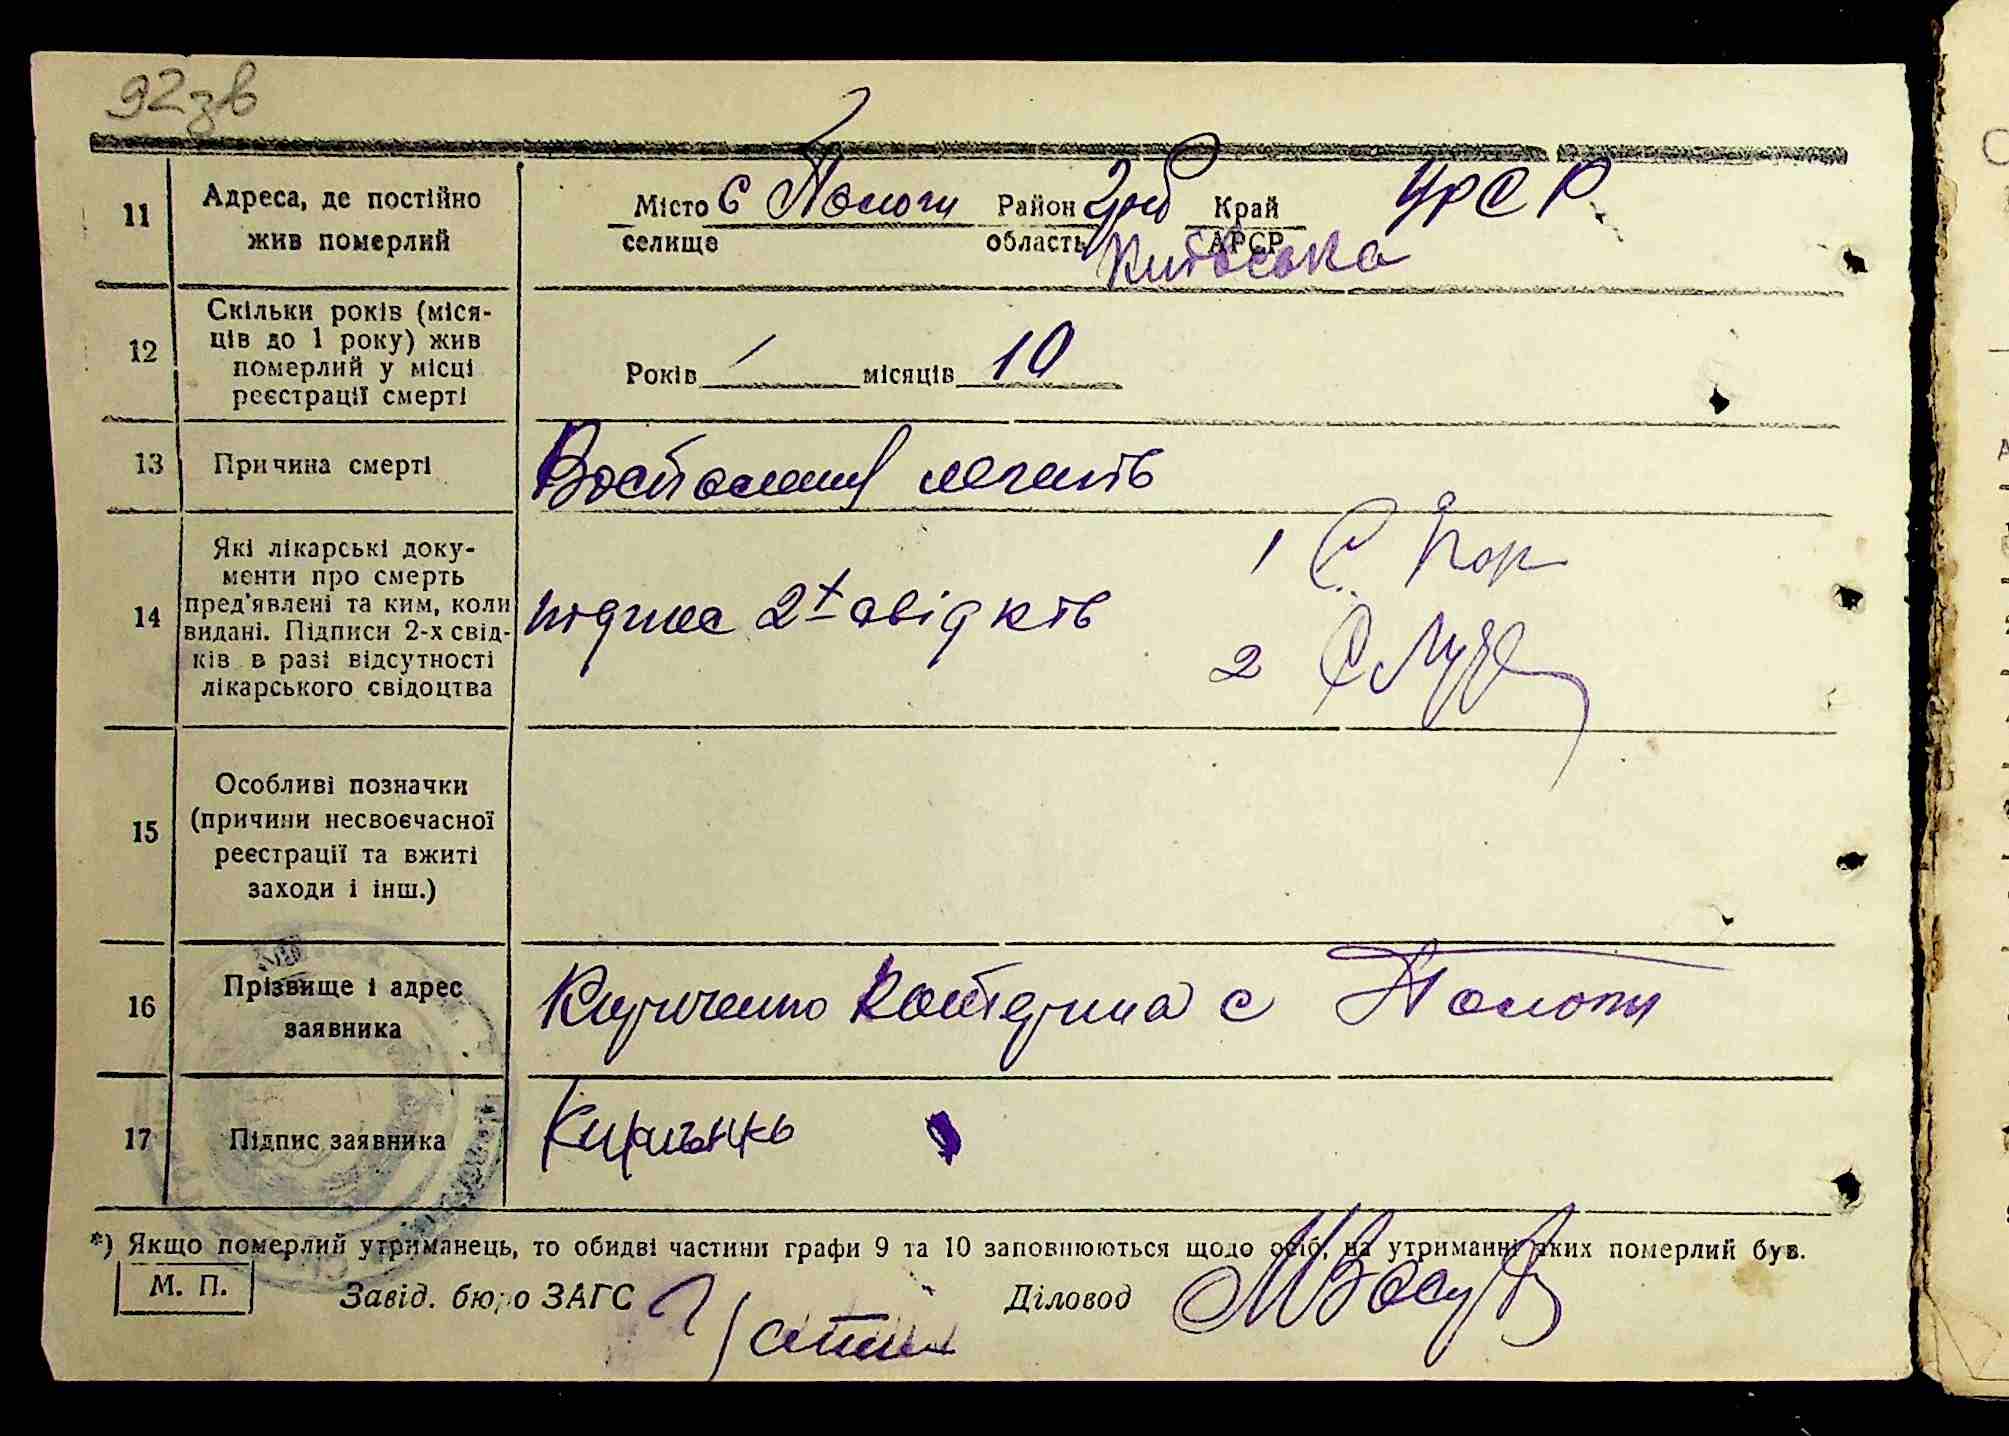 92зв
11
Адреса, де постійно
жив померлий
Місто с Пологи Район Край УРСР
селище область АРСР
Київська
12
Скільки років (міся-
ців до 1 року) жив
померлий у місці
реєстрації смерті
Років / місяців 10
13
Причина смерті
14
Які лікарські доку-
менти про смерть
пред'явлені та ким, коли
видані. Підписи 2-х свід-
ків в разі відсутності
лікарського свідоцтва
підписи 2х свідків
1
2
15
Особливі позначки
(причини несвоєчасної
реєстрації та вжиті
заходи і інш.)
16
Прізвище і адрес
заявника
Катерина с Пологи
17
Підпис заявника
*) Якщо померлий утриманець, то обидві частини графи 9 та 10 заповнюються щодо осіб, на утриманні яких померлий був.
М. П.
Завід. бюро ЗАГС
Діловод